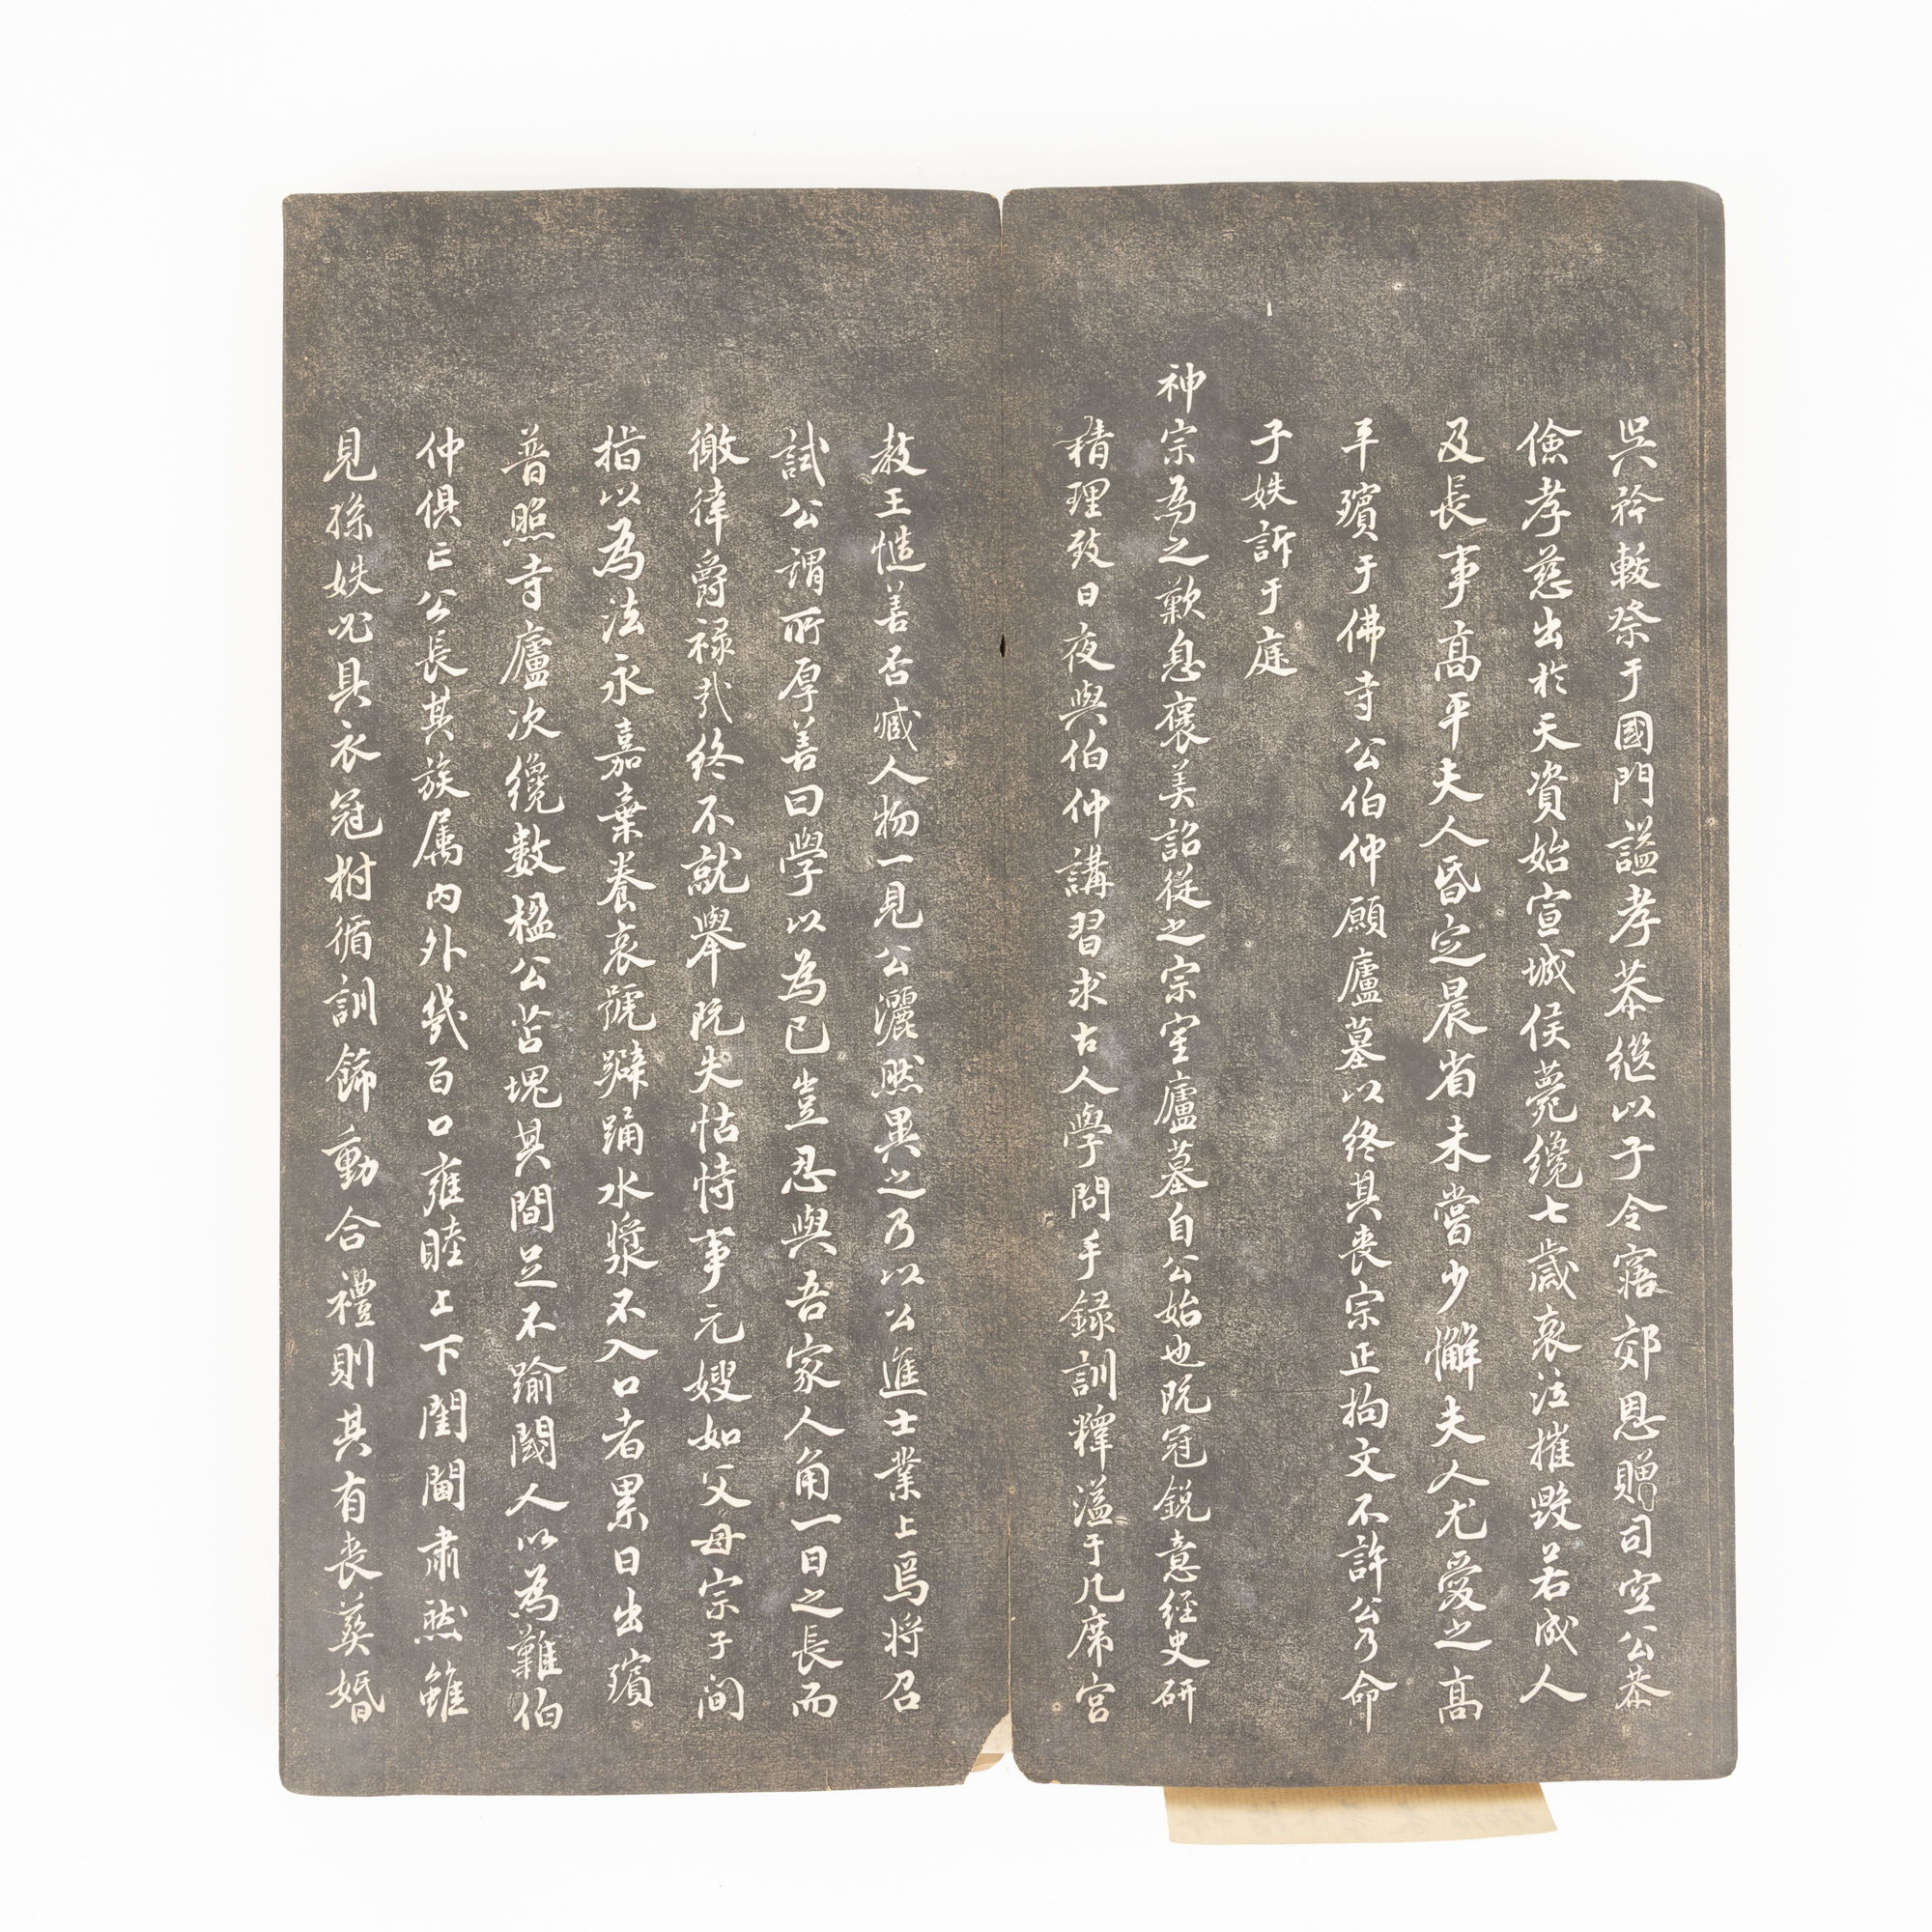 吳矜輟祭于國門謚孝恭繼以子令寤郊恩贈司空公恭
儉孝慈出於天資始宣城侯薨纔七歲哀泣摧毀若成人
及長事高平夫人昏定晨省未嘗少懈夫人尤愛之高
平殯于佛寺公伯仲願廬墓以終其喪宗正拘文不許公乃命
子姪訴于庭
神宗為之歎息褒美詔從之宗室廬墓自公始也既冠銳意經史研
精理致日夜與伯仲講習求古人學問手錄訓釋溢于几席宮
教王慥善否臧人物一見公灑然異之乃以公進士業上焉將召
試公謂所厚善曰學以為己豈忍與吾家人角一日之長而
徼倖爵祿哉終不就舉既失怙恃事元嫂如父母宗子間
指以為法永嘉棄養哀號擗踊水漿不入口者累日出殯
普照寺廬次纔數楹公苫塊其間足不踰閾人以為難伯
仲俱亡公長其族屬內外幾百口雍睦上下閨閫肅然雖
見孫姪必具衣冠拊循訓飾動合禮則其有喪葬婚